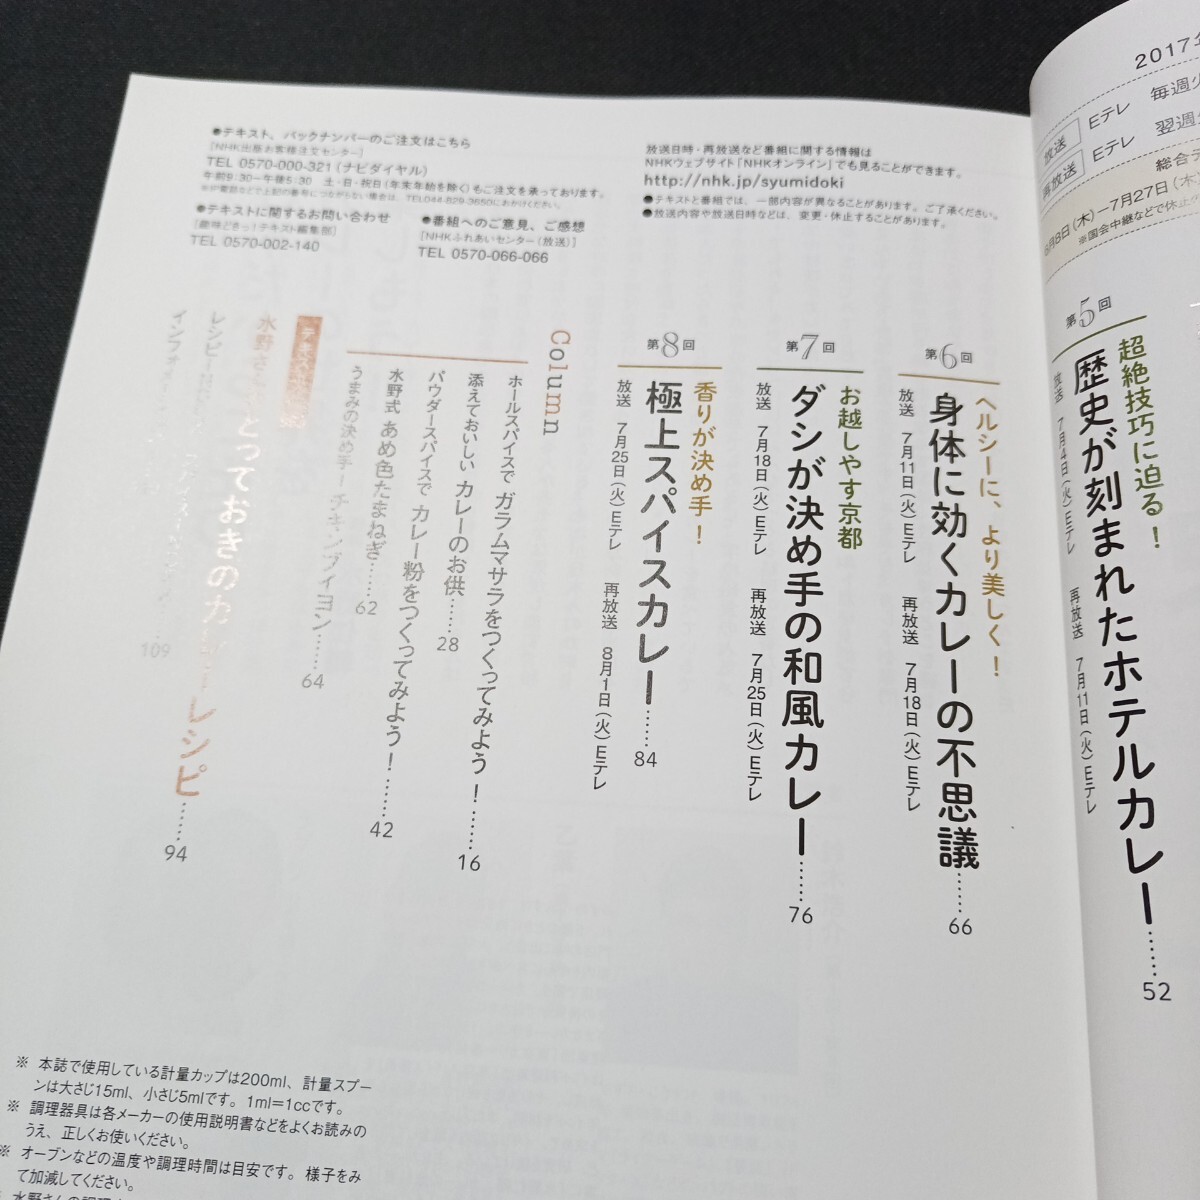 2017年
放送
Eテレ 毎週火
再放送
Eテレ 翌週火
総合テ
6月8日（木）―7月27日（木）
※国会中継などで休止
第5回
超絶技巧に迫る！
歴史が刻まれたホテルカレー……52
放送 7月4日（火）Eテレ 再放送 7月11日（火）Eテレ
●テキスト、バックナンバーのご注文はこちら
［NHK出版お客様注文センター］
TEL 0570-000-321（ナビダイヤル）
午前9:30〜午後5:30 土・日・祝日（年末年始を除く）もご注文を承っております。
※IP電話などで上記の番号につながらない場合は、TEL044-829-3650におかけください。
●テキストに関するお問い合わせ
［趣味どきっ！テキスト編集部］
TEL 0570-002-140
●番組へのご意見、ご感想
［NHKふれあいセンター（放送）］
TEL 0570-066-066
放送日時・再放送など番組に関する情報は
NHKウェブサイト「NHKオンライン」でも見ることができます。
http://nhk.jp/syumidoki
●テキストと番組では、一部内容が異なることがあります。ご了承ください。
●放送内容や放送日時などは、変更・休止することがあります。
第6回
ヘルシーに、より美しく！
身体に効くカレーの不思議……66
放送 7月11日（火）Eテレ 再放送 7月18日（火）Eテレ
第7回
お越しやす京都
ダシが決め手の和風カレー……76
放送 7月18日（火）Eテレ 再放送 7月25日（火）Eテレ
第8回
香りが決め手！
極上スパイスカレー……84
放送 7月25日（火）Eテレ 再放送 8月1日（火）Eテレ
Column
ホールスパイスで ガラムマサラをつくってみよう！……16
添えておいしい カレーのお供……28
パウダースパイスで カレー粉をつくってみよう！……42
水野式 あめ色たまねぎ……62
うまみの決め手！ チキンブイヨン……64
テキス
水野さ とっておきのカレーレシピ……94
レシピ
インフォ
109
※ 本誌で使用している計量カップは200ml、計量スプー
ンは大さじ15ml、小さじ5mlです。1ml＝1ccです。
※ 調理器具は各メーカーの使用説明書などをよくお読みの
うえ、正しくお使いください。
※ オーブンなどの温度や調理時間は目安です。様子をみ
て加減してください。
水野さんの調理